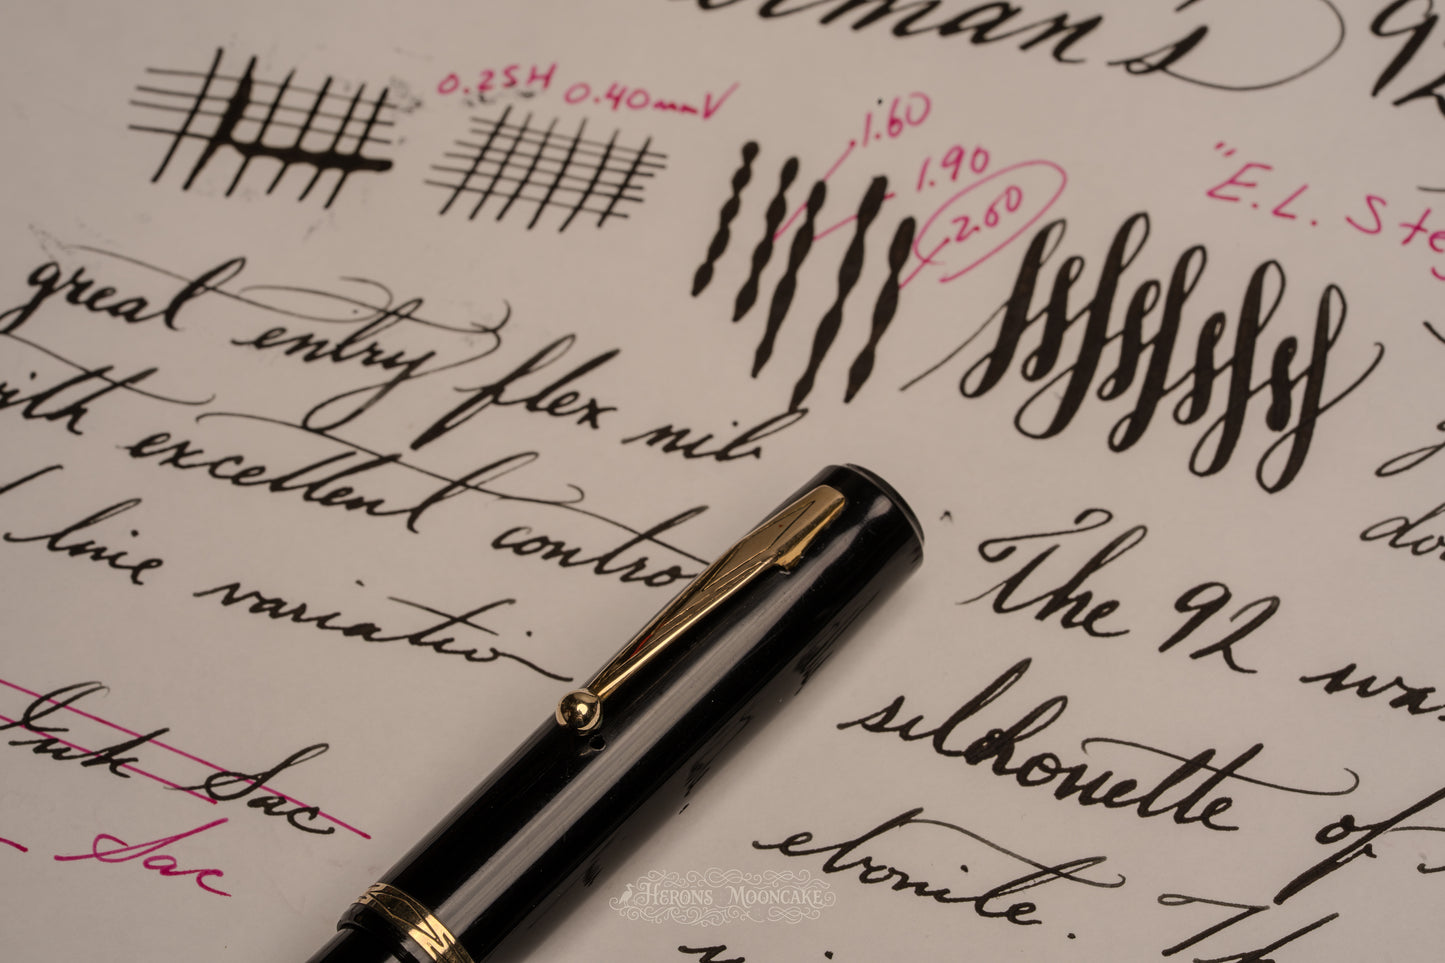 man's 92
0.25H 0.40mmV
1.60
1.90
2.60
"E.L. Ste
great entry flex nib
with excellent contro
line variatio
Ink Sac
Sac
The 92 wa
silhouette of
ebonite. Th
HERONS MOONCAKE